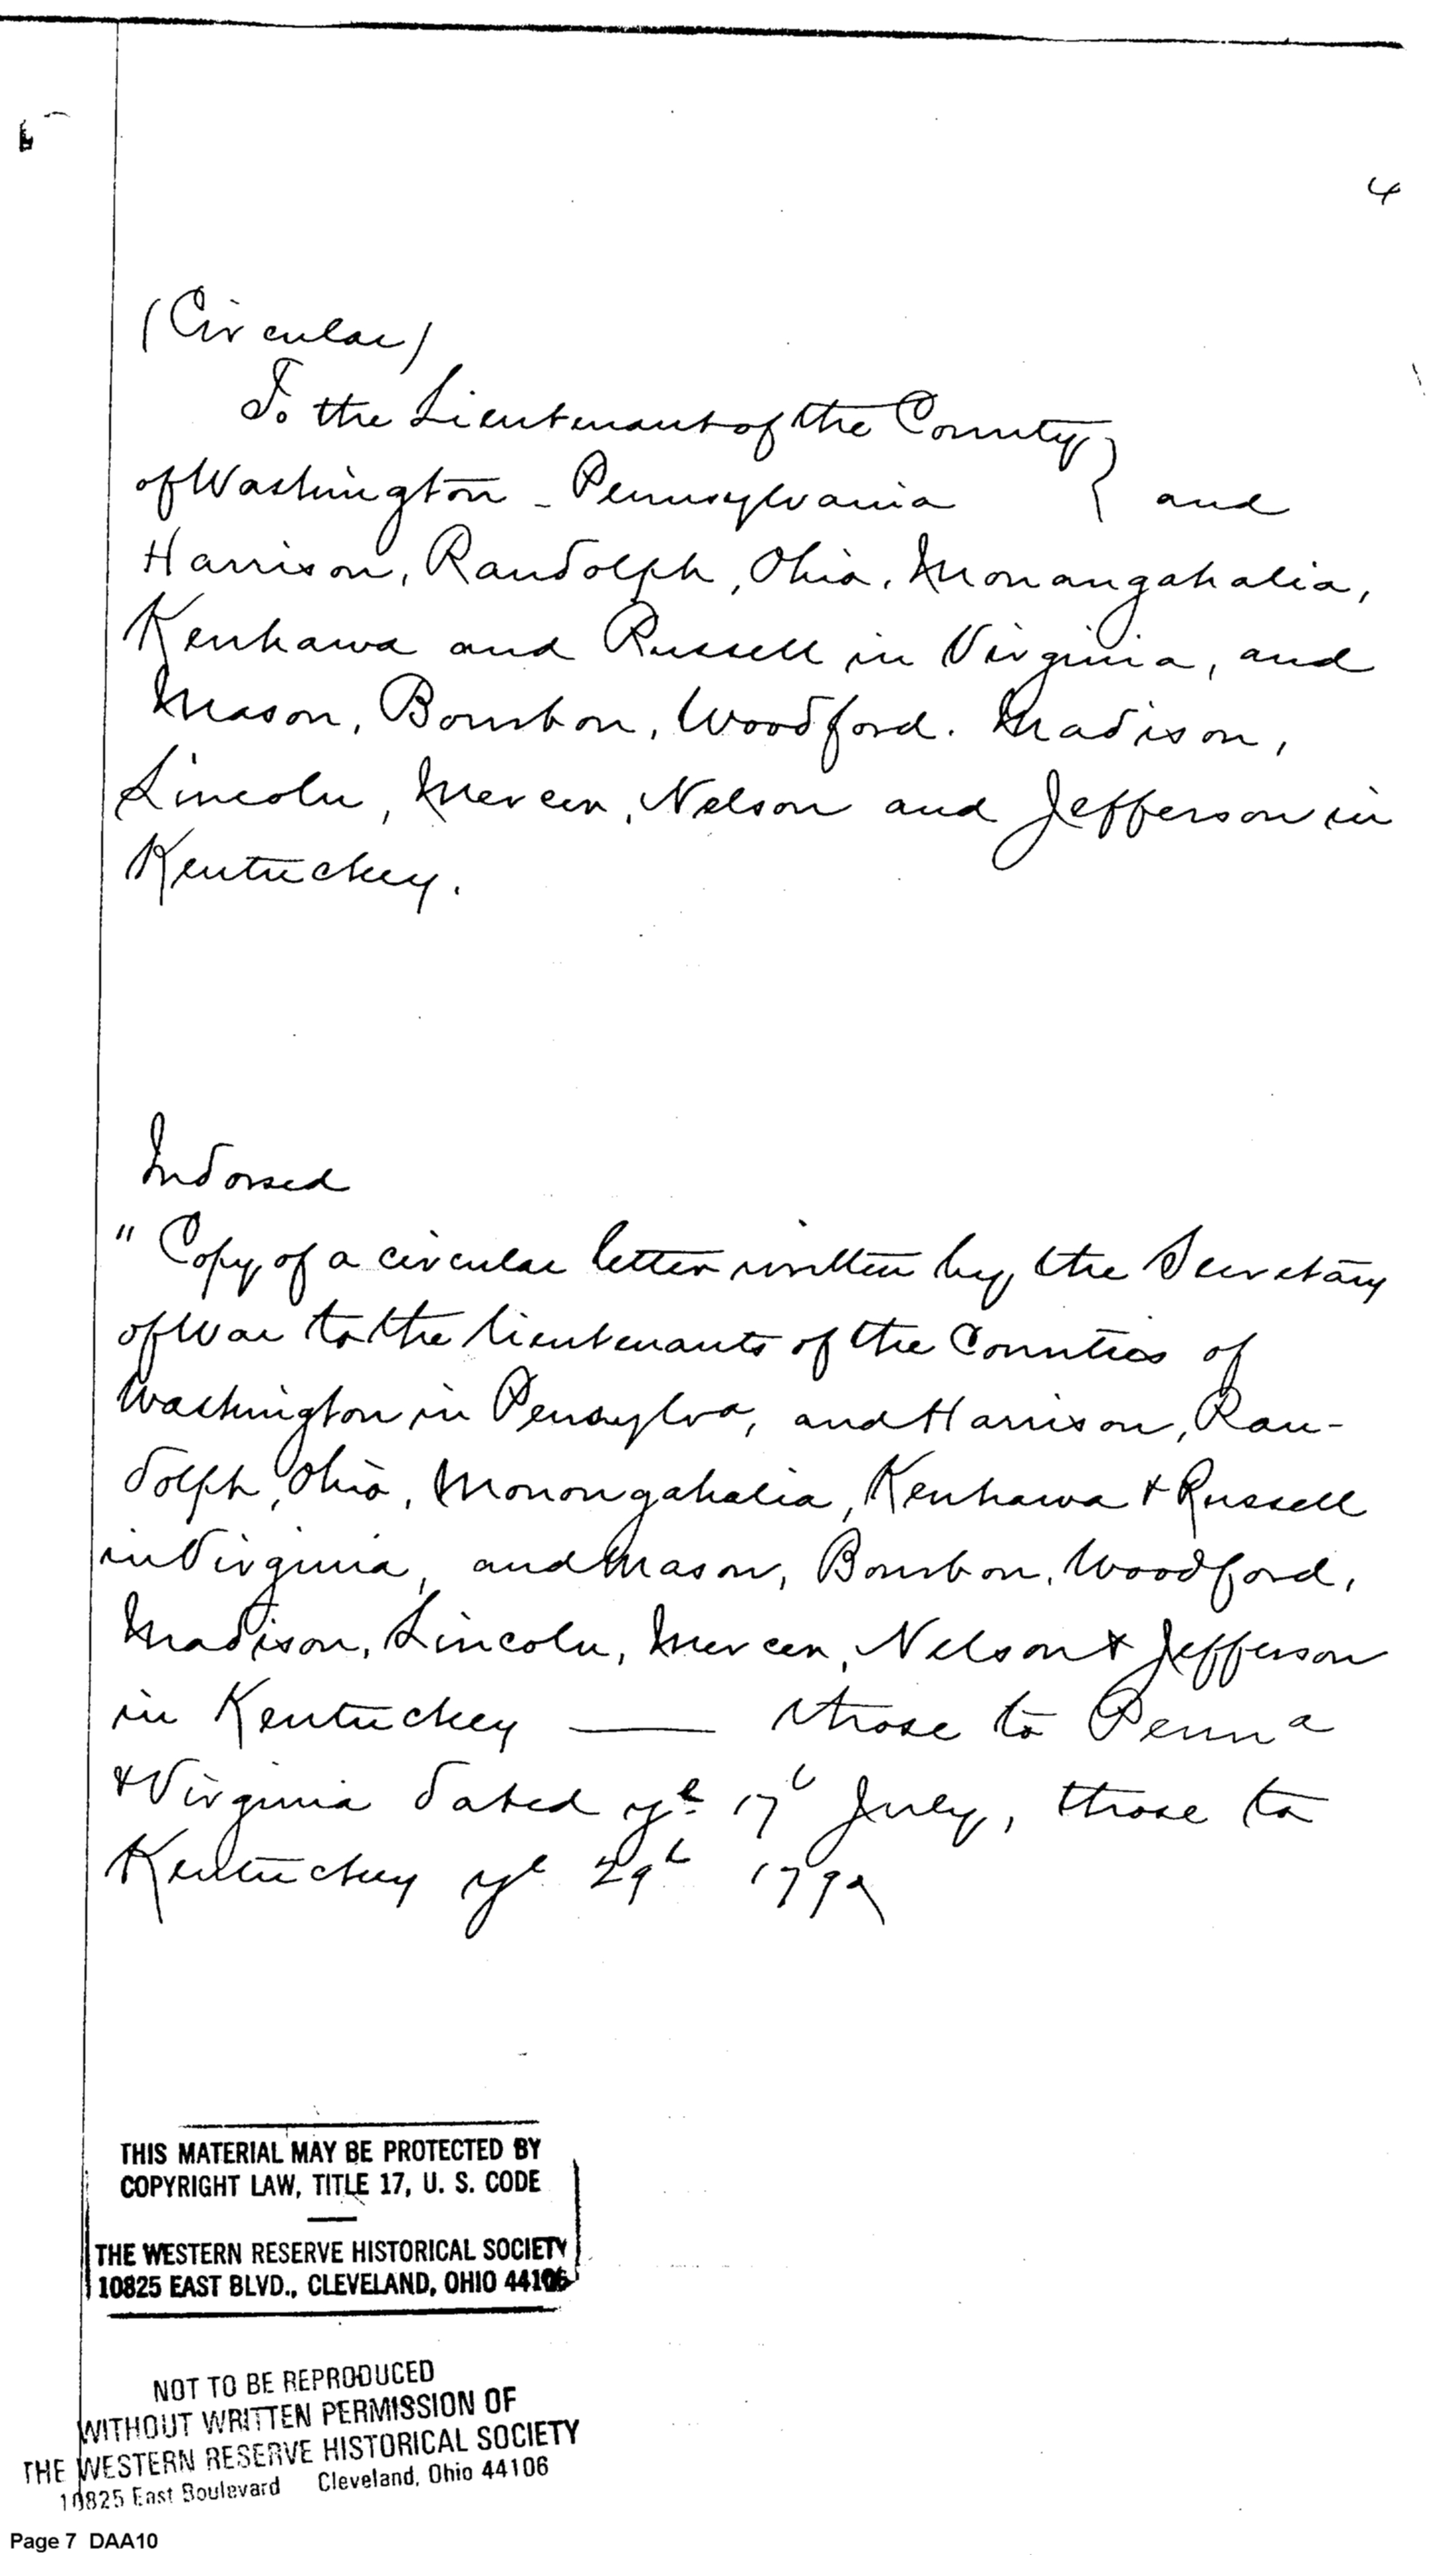 4
(Circular)
To the Lieutenant of the County }
of Washington - Pennsylvania } and
Harrison, Randolph, Ohio, Monangahalia,
Kenhawa and Russell in Virginia, and
Mason, Bourbon, Woodford. Madison,
Lincoln, Mercer, Nelson and Jefferson in
Kentuckey.
Indorsed
" Copy of a circular letter written by the Secretary
of War to the lieutenants of the Counties of
Washington in Pensylva, and Harrison, Ran-
dolph, Ohio, Monongahalia, Kenhawa & Russell
in Virginia, and Mason, Bourbon, Woodford,
Madison, Lincoln, Mercer, Nelson & Jefferson
in Kentuckey —— those to Penna
& Virginia dated ye 17t July, those to
Kentuckey ye 29t
THIS MATERIAL MAY BE PROTECTED BY
COPYRIGHT LAW, TITLE 17, U. S. CODE
THE WESTERN RESERVE HISTORICAL SOCIETY
10825 EAST BLVD., CLEVELAND, OHIO 44106
NOT TO BE REPRODUCED
WITHOUT WRITTEN PERMISSION OF
THE WESTERN RESERVE HISTORICAL SOCIETY
10825 East Boulevard Cleveland, Ohio 44106
Page 7 DAA10